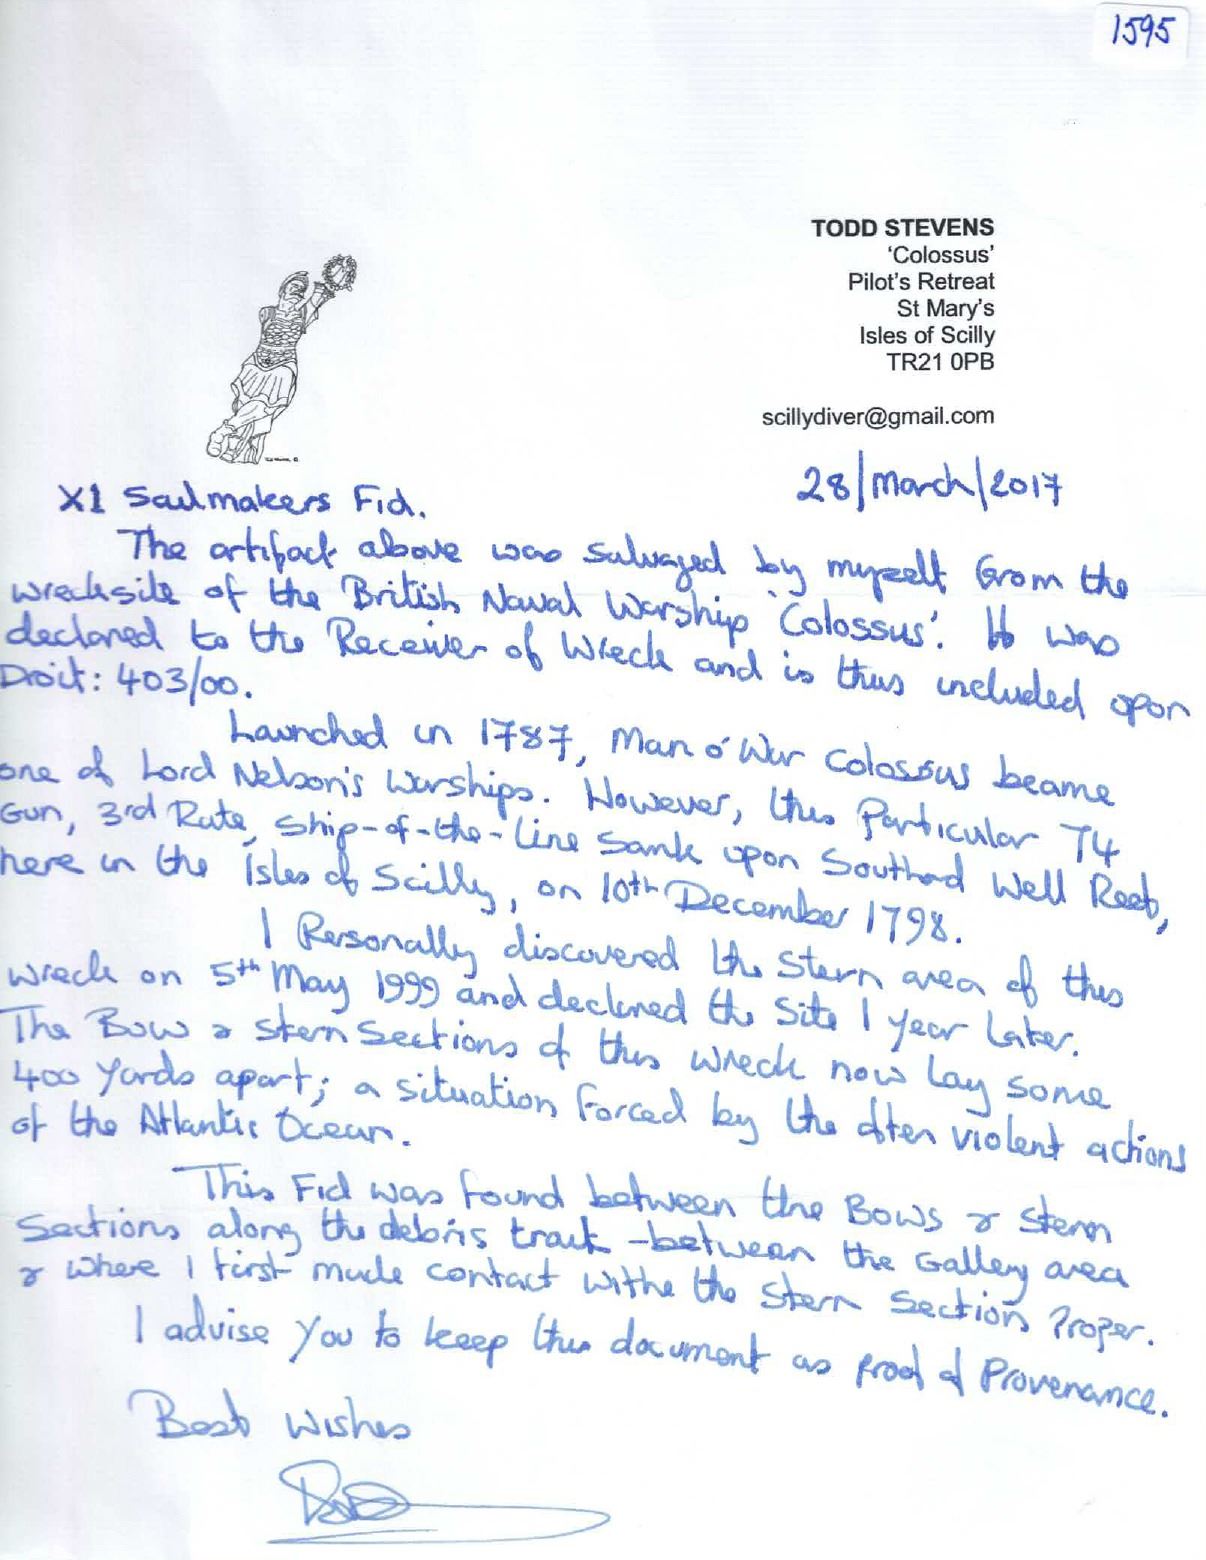 1595
TODD STEVENS
'Colossus'
Pilot's Retreat
St Mary's
Isles of Scilly
TR21 0PB
scillydiver@gmail.com
28/March/2017
X1 Sailmakers Fid.
The artifact above was salvaged by myself from the
wrecksite of the British Naval Warship 'Colossus'. It was
declared to the Receiver of Wreck and is thus included upon
Droit: 403/00.
Launched in 1787, Man o' War Colossus beame
one of Lord Nelson's Warships. However, this Particular 74
Gun, 3rd Rate, Ship-of-the-Line Sank upon Southard Well Reef,
here in the Isles of Scilly, on 10th December 1798.
I Personally discovered the stern area of this
wreck on 5th May 1999 and declared the Site 1 year Later.
The Bow & Stern Sections of this wreck now lay some
400 Yards apart; a situation forced by the often violent actions
of the Atlantic Ocean.
This Fid was found between the Bows & Stern
Sections along the debris track - between the Galley area
& where I first made contact withe the Stern Section Proper.
I advise You to keep this document as proof of Provenance.
Best Wishes